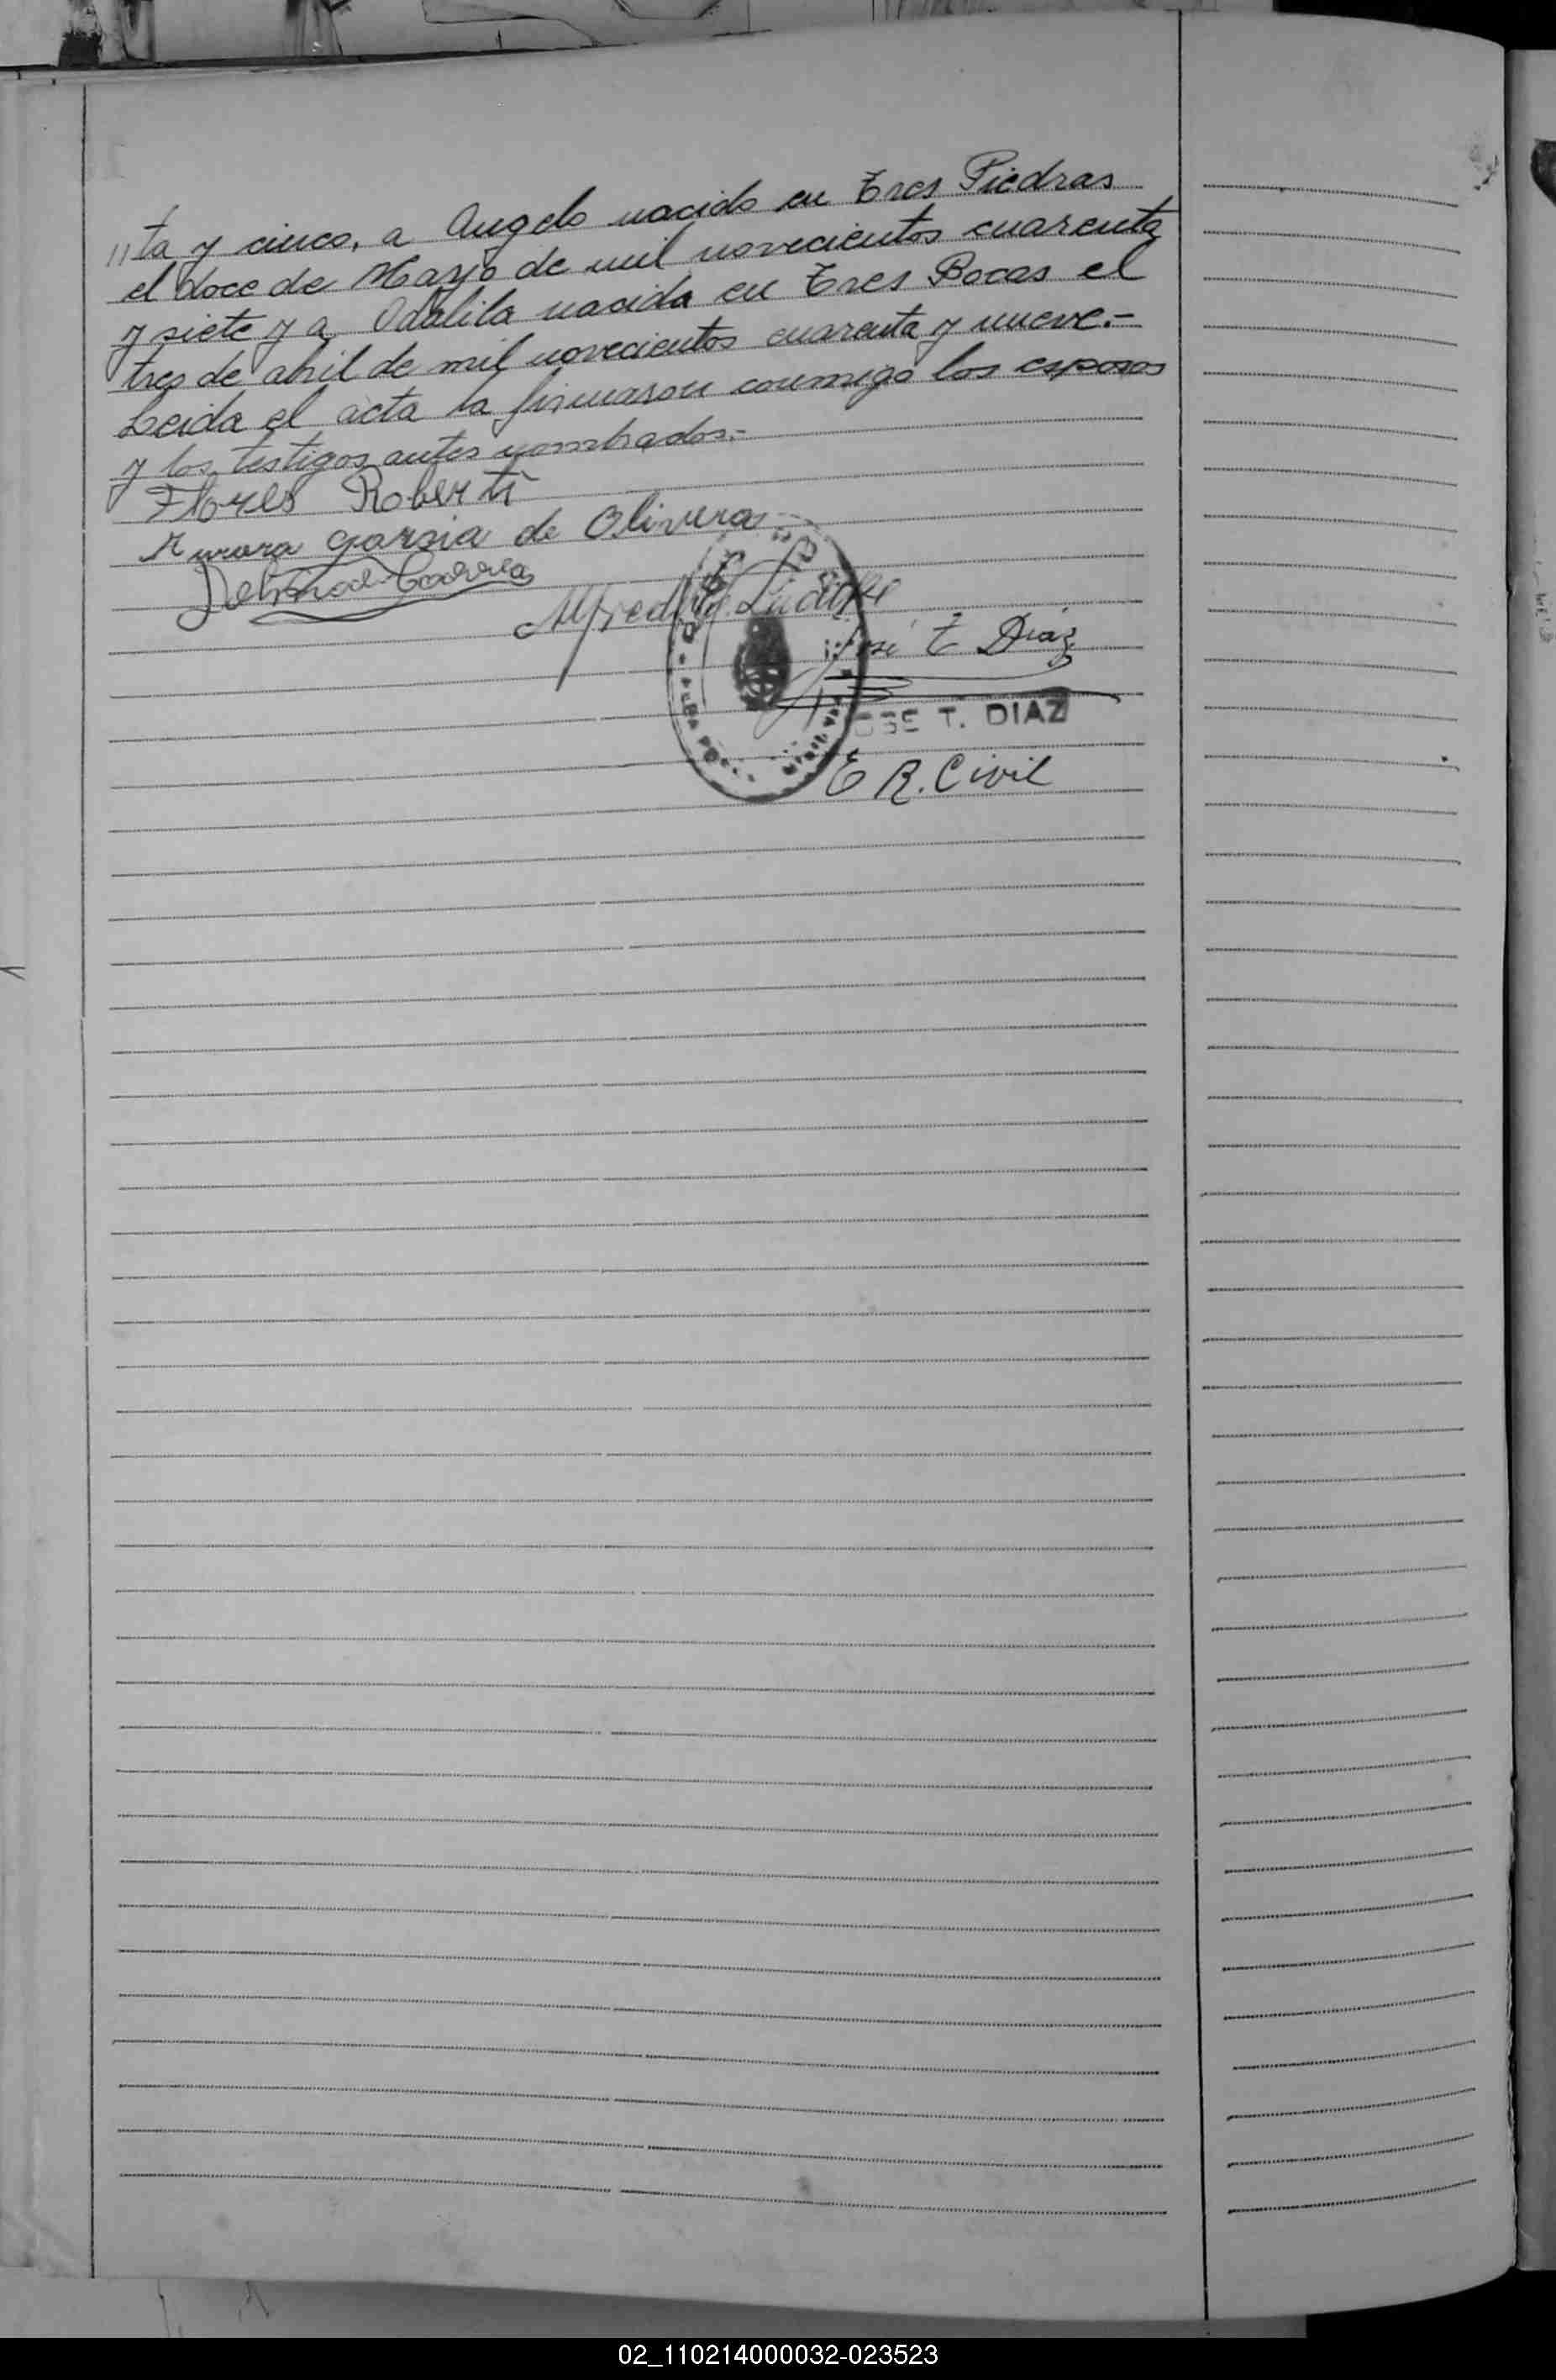 "ta y cinco, a Angelo nacido en Tres Piedras
el doce de Mayo de mil novecientos cuarenta
y siete y a Odalila nacida en Tres Bocas el
tres de abril de mil novecientos cuarenta y nueve.-
Leida el acta la firmaron conmigo los esposos
y los testigos antes nombrados.-
Flores Roberti
Aurora garsia de Olivera
Correa
Alfredo
José T Diaz
OSE T. DIAZ
E R. Civil
02_110214000032-023523